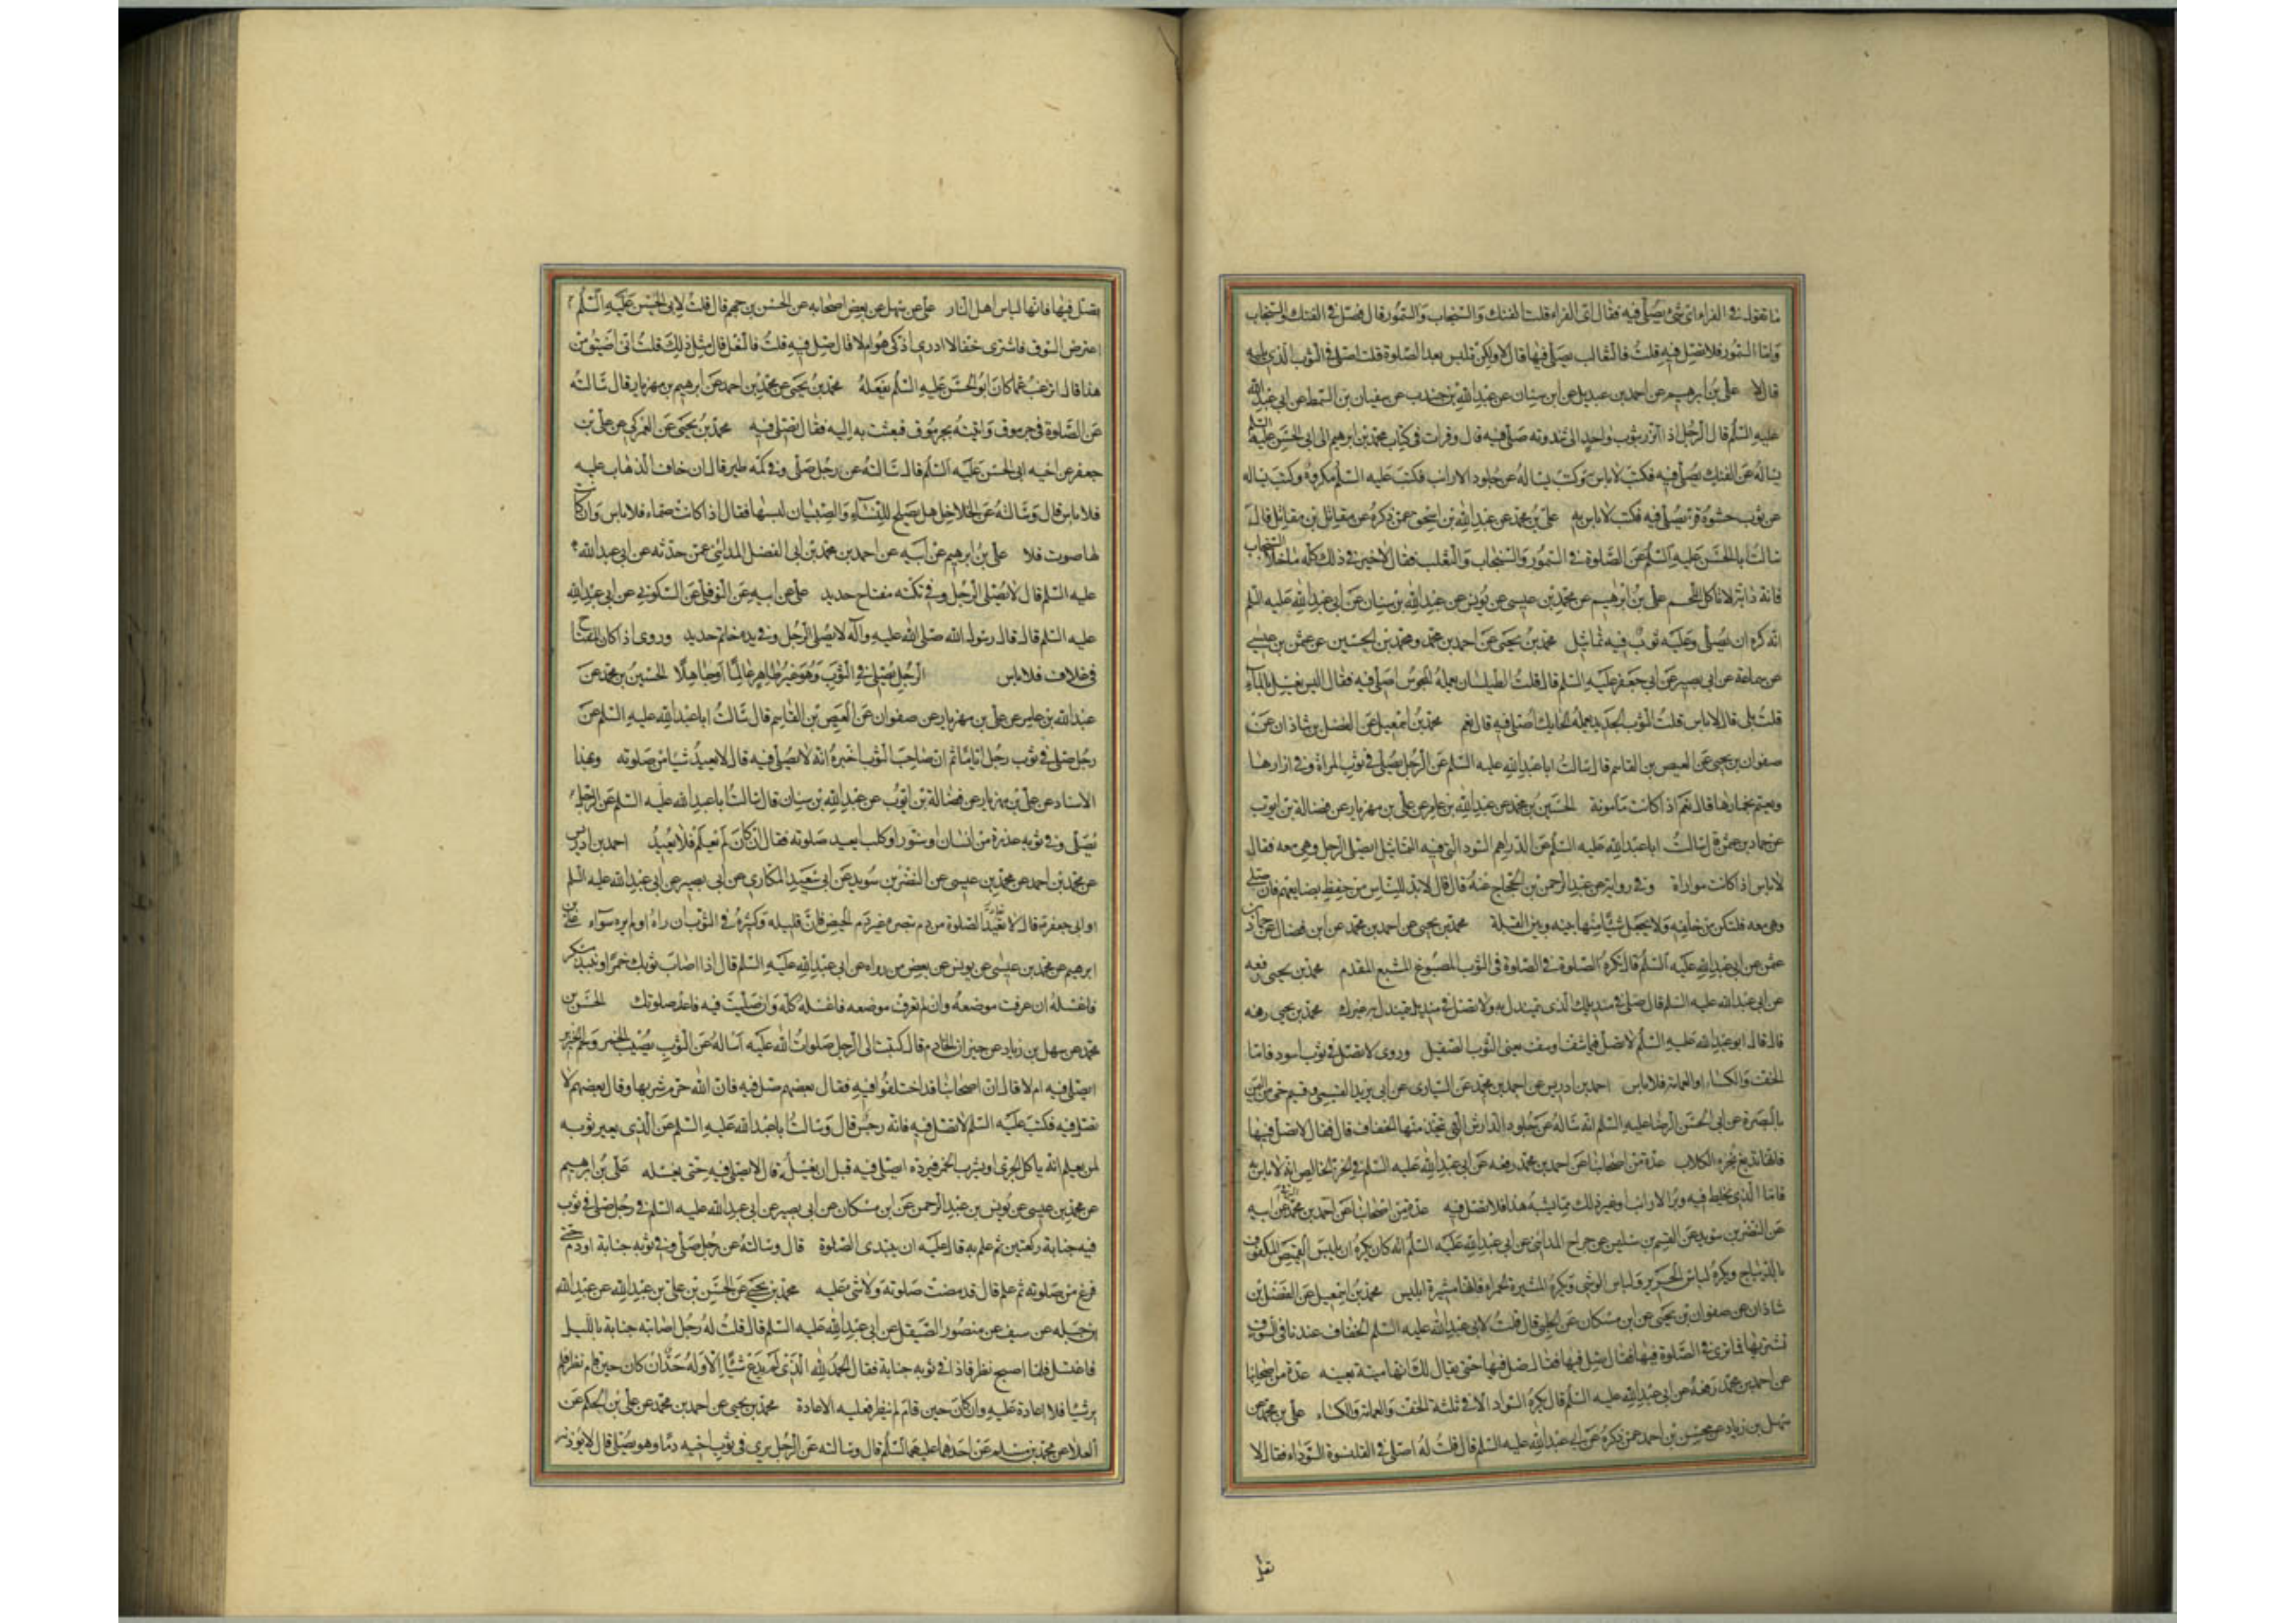 ما تقول في الفراء اي شئ يصلى فيه فقال اي الفراء قلت الفنك والسنجاب والسمور قال فصل في الفنك والسنجاب
واما السمور فلا تصل فيه قلت فالثعالب يصلى فيها قال لا ولكن تلبس بعد الصلوة قلت اصلي في الثوب الذي يليه
قال لا علي بن ابرهيم عن احمد بن عبديل عن ابن سنان عن عبد الله بن جندب عن سفيان بن السمط عن ابي عبد الله
عليه السلم قال الرجل اذا اتزر بثوب واحد الى ثندوته صلى فيه قال وقرات في كتاب محمد بن ابرهيم الى ابي الحسن عليه السلم
يساله عن الفنك يصلى فيه فكتب لا باس وكتب يساله عن جلود الارانب فكتب عليه السلم مكروه وكتب يساله
عن ثوب حشوه قز يصلى فيه فكتب لا باس به علي بن محمد عن عبد الله بن اسحق عمن ذكره عن مقاتل بن مقاتل قال
سالت ابا الحسن عليه السلم عن الصلوة في السمور والسنجاب والثعلب فقال لا خير في ذلك كله ما خلا السنجاب
فانه دابة لا تاكل اللحم علي بن ابرهيم عن محمد بن عيسى عن يونس عن عبد الله بن سنان عن ابي عبد الله عليه السلم
انه كره ان يصلى وعليه ثوب فيه تماثيل محمد بن يحيى عن احمد بن محمد ومحمد بن الحسين عن عثمن بن عيسى
عن سماعة عن ابي بصير عن ابي جعفر عليه السلم قال قلت الطيلسان يعمله المجوس اصلي فيه فقال اليس يغسل بالماء
قلت بلى قال لا باس قلت الثوب الجديد يعمله الحايك اصلي فيه قال نعم محمد بن اسمعيل عن الفضل بن شاذان عن
صفوان بن يحيى عن العيص بن القاسم قال سالت ابا عبد الله عليه السلم عن الرجل يصلي في ثوب المراة وفي ازارها
ويعتم بخمارها قال نعم اذا كانت مامونة الحسين بن محمد عن عبد الله بن عامر عن علي بن مهزيار عن فضالة بن ايوب
عن حماد بن عثمن قال سالت ابا عبد الله عليه السلم عن الدراهم السود التي فيه التماثيل ايصلي الرجل وهي معه فقال
لا باس اذا كانت مواراة وفي رواية عن عبد الرحمن بن الحجاج عنه قال قال لا بد للناس من حفظ بضايعهم فان صلى
وهي معه فلتكن من خلفه ولا يجعل شيئا منها بينه وبين القبلة محمد بن يحيى عن احمد بن محمد عن ابن فضال عن حماد بن
عثمن عن ابي عبد الله عليه السلم قال تكره الصلوة في الصلوة في الثوب المصبوغ المشبع المقدم محمد بن يحيى رفعه
عن ابي عبد الله عليه السلم قال صل في منديلك الذي تتمندل به ولا تصل في منديل يتمندل به غيرك محمد بن يحيى رفعه
قال قال ابو عبد الله عليه السلم لا تصل فيما شف او سف يعني الثوب الصقيل وروي لا تصل في ثوب اسود فاما
الخف والكساء او العمامة فلا باس احمد بن ادريس عن احمد بن محمد عن السياري عن ابي يزيد القسمي وقسم حي من اليمن
بالبصرة عن ابي الحسن الرضا عليه السلم انه ساله عن جلود الدارش التي يتخذ منها الخفاف قال فقال لا تصل فيها
فانها تدبغ بخرء الكلاب عدة من اصحابنا عن احمد بن محمد رفعه عن ابي عبد الله عليه السلم في الخز الخالص انه لا باس به
فاما الذي يخلط فيه وبر الارانب او غير ذلك مما يشبه هذا فلا تصل فيه عدة من اصحابنا عن احمد بن محمد عن ابيه
عن النضر بن سويد عن القسم بن سليمن عن جراح المدائني عن ابي عبد الله عليه السلم انه كان يكره ان يلبس القميص المكفوف
بالديباج ويكره لباس الحرير ولباس الوشي ويكره الميثرة الحمراء فانها ميثرة ابليس محمد بن اسمعيل عن الفضل بن
شاذان عن صفوان بن يحيى عن ابن مسكان عن الحلبي قال قلت لابي عبد الله عليه السلم الخفاف عندنا في السوق
نشتريها فما ترى في الصلوة فيها فقال صل فيها حتى يقال لك انها ميتة بعينه عدة من اصحابنا
عن احمد بن محمد رفعه عن ابي عبد الله عليه السلم قال يكره السواد الا في ثلثة الخف والعمامة والكساء علي بن محمد عن
سهل بن زياد عن محسن بن احمد عمن ذكره عن ابي عبد الله عليه السلم قال قلت له اصلي في القلنسوة السوداء فقال لا
تصل فيها فانها لباس اهل النار علي عن سهل عن بعض اصحابه عن الحسن بن جهم قال قلت لابي الحسن عليه السلم
اعترض السوق فاشتري خفا لا ادري اذكي هو ام لا قال صل فيه قلت فالنعل قال مثل ذلك قلت اني اضيق من
هذا قال اترغب عما كان ابو الحسن عليه السلم يفعله محمد بن يحيى عن محمد بن احمد عن ابرهيم بن مهزيار قال سالته
عن الصلوة في جرموق واتيته بجرموق فبعثت به اليه فقال يصلى فيه محمد بن يحيى عن العمركي عن علي بن
جعفر عن اخيه ابي الحسن عليه السلم قال سالته عن رجل صلى وفي كمه طير قال ان خاف الذهاب عليه
فلا باس قال وسالته عن الخلاخل هل يصلح للنساء والصبيان لبسها فقال اذا كانت صماء فلا باس وان كانت
لها صوت فلا علي بن ابرهيم عن ابيه عن احمد بن محمد بن ابي الفضل المدائني عمن حدثه عن ابي عبد الله
عليه السلم قال لا يصلي الرجل وفي تكته مفتاح حديد علي عن ابيه عن النوفلي عن السكوني عن ابي عبد الله
عليه السلم قال قال رسول الله صلى الله عليه وآله لا يصلي الرجل وفي يده خاتم حديد وروي اذا كان المفتاح
في غلاف فلا باس الرجل يصلي في الثوب وهو غير طاهر عالما او جاهلا الحسين بن محمد عن
عبد الله بن عامر عن علي بن مهزيار عن صفوان عن العيص بن القاسم قال سالت ابا عبد الله عليه السلم عن
رجل صلى في ثوب رجل اياما ثم ان صاحب الثوب اخبره انه لا يصلي فيه قال لا يعيد شيئا من صلوته وبهذا
الاسناد عن علي بن مهزيار عن فضالة بن ايوب عن عبد الله بن سنان قال سالت ابا عبد الله عليه السلم عن الرجل
يصلي وفي ثوبه عذرة من انسان او سنور او كلب ايعيد صلوته فقال ان كان لم يعلم فلا يعيد احمد بن ادريس
عن محمد بن احمد عن محمد بن عيسى عن النضر بن سويد عن ابي سعيد المكاري عن ابي بصير عن ابي عبد الله عليه السلم
او ابي جعفر قال لا تعاد الصلوة من دم تبصره غير دم الحيض فان قليله وكثيره في الثوب ان راه او لم يره سواء علي بن
ابرهيم عن محمد بن عيسى عن يونس عن بعض من رواه عن ابي عبد الله عليه السلم قال اذا اصاب ثوبك خمر او نبيذ مسكر
فاغسله ان عرفت موضعه وان لم تعرف موضعه فاغسله كله وان صليت فيه فاعد صلوتك الحسين بن
محمد عن سهل بن زياد عن خيران الخادم قال كتبت الى الرجل صلوات الله عليه اساله عن الثوب يصيب الخمر ولحم الخنزير
ايصلى فيه ام لا قال ان اصحابنا قد اختلفوا فيه فقال بعضهم صل فيه فان الله حرم شربها وقال بعضهم لا
تصل فيه فكتب عليه السلم لا تصل فيه فانه رجس قال وسالت ابا عبد الله عليه السلم عن الذي يعير ثوبه
لمن يعلم انه ياكل الجري او يشرب الخمر فيرده ايصلي فيه قبل ان يغسله قال لا يصلي فيه حتى يغسله علي بن ابرهيم
عن محمد بن عيسى عن يونس بن عبد الرحمن عن ابن مسكان عن ابي بصير عن ابي عبد الله عليه السلم في رجل صلى في ثوب
فيه جنابة ركعتين ثم علم به قال عليه ان يبتدئ الصلوة قال وسالته عن رجل صلى وفي ثوبه جنابة او دم حتى
فرغ من صلوته ثم علم قال قد مضت صلوته ولا شئ عليه محمد بن يحيى عن الحسن بن علي بن عبد الله عن عبد الله
بن جبله عن سيف عن منصور الصيقل عن ابي عبد الله عليه السلم قال قلت له رجل اصابته جنابة بالليل
فاغتسل فلما اصبح نظر فاذا في ثوبه جنابة فقال الحمد لله الذي لم يدع شيئا الا وله حد ان كان حين قام نظر فلم
ير شيئا فلا اعادة عليه وان كان حين قام لم ينظر فعليه الاعادة محمد بن يحيى عن احمد بن محمد عن علي بن الحكم عن
العلا عن محمد بن مسلم عن احدهما عليهما السلم قال وسالته عن الرجل يرى في ثوب اخيه دما وهو يصلي قال لا يؤذنه